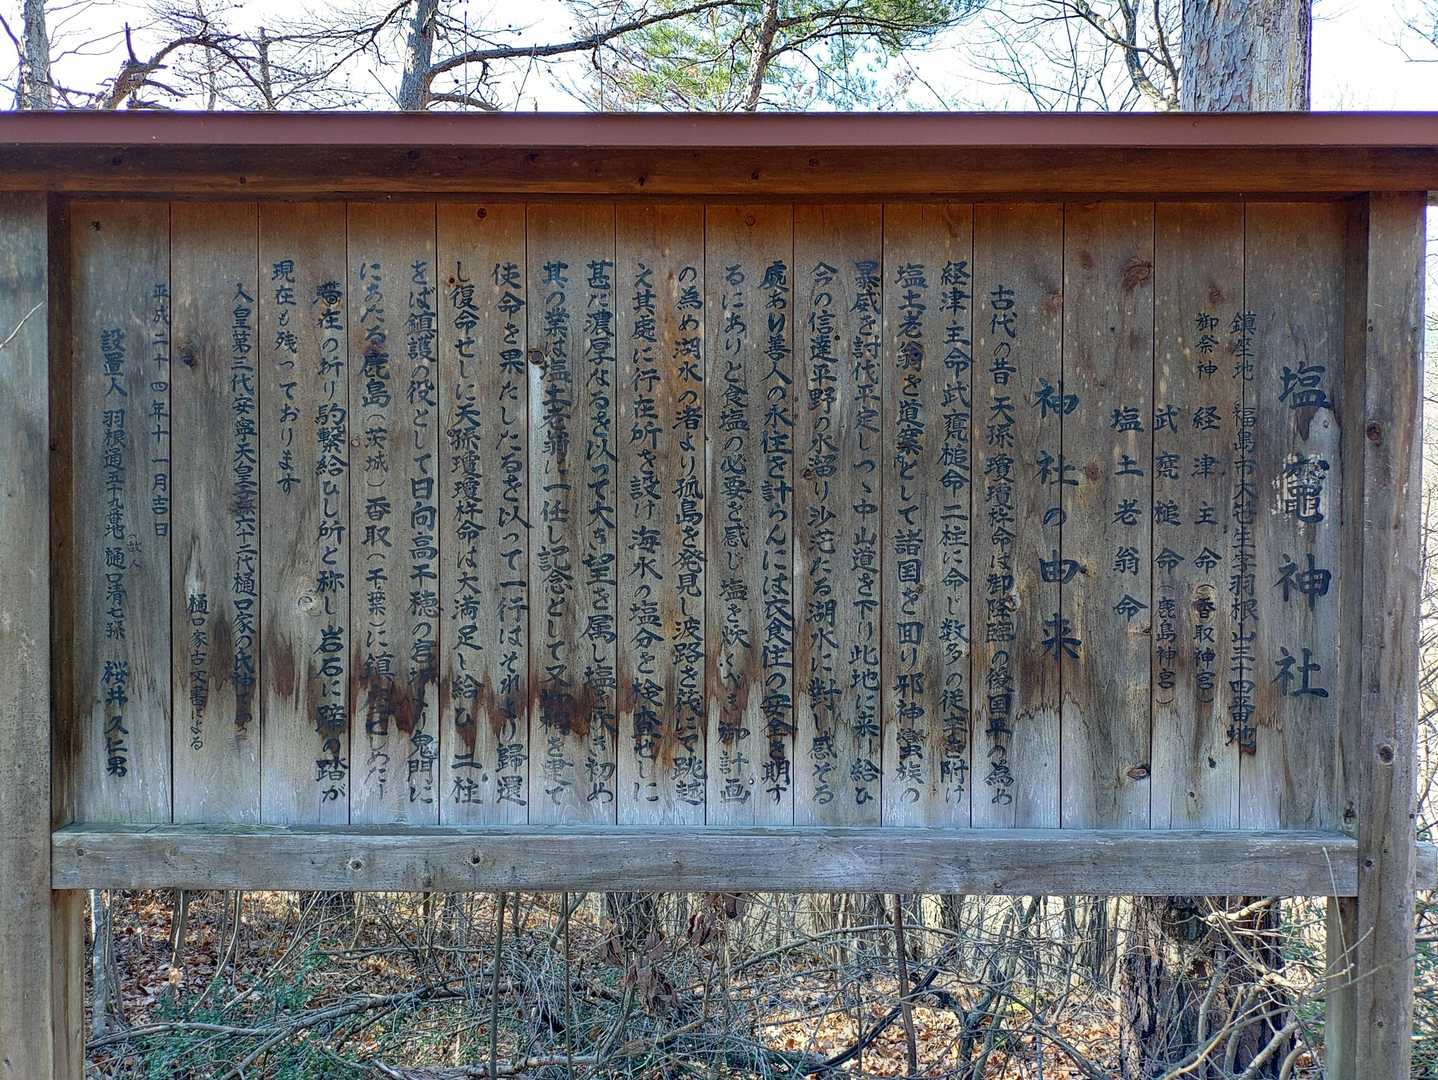 塩竈神社
鎮座地 福島市大笹生字羽根山三十四番地
御祭神 経津主命(香取神宮)
武甕槌命(鹿島神宮)
塩土老翁命
神社の由来
古代の昔天孫瓊瓊杵命は御降臨の後国平の為め
経津主命武甕槌命二柱に命じ数多の従者を附け
塩土老翁を道案内として諸国を回り邪神蛮族の
暴威を討伐平定しつゝ中山道を下り此地に来し給ひ
今の信達平野の水溜り沙宅たる湖水に對し感ぞる
處あり善人の永住を計らんには衣食住の安全を期す
るにありと食塩の必要を感じ塩を炊くべき御計画
の為め湖水の者より孤島を発見し波路を筏にて跳越
え其處に行在所を設け海水の塩分を検査せしに
甚だ濃厚なるを以て大き望を属し塩 き初め
其の業は塩土老翁に一任し記念として又 を建て
使命を果たしたるを以って一行はそれより歸還
し復命せしに天孫瓊瓊杵命は大満足し給ひ二柱
をば鎮護の役として日向高千穂の宮 より鬼門に
にあたる鹿島(茨城)香取(千葉)に鎮 したり
在の折り駒繋給ひし所と称し岩石に蹄の踏が
現在も残っております
人皇第三代安寧天皇 六十二代樋口家の氏神
樋口家古文書による
平成二十四年十一月吉日
設置人 羽根通五十九番地 (故人)樋口清七孫 桜井久仁男